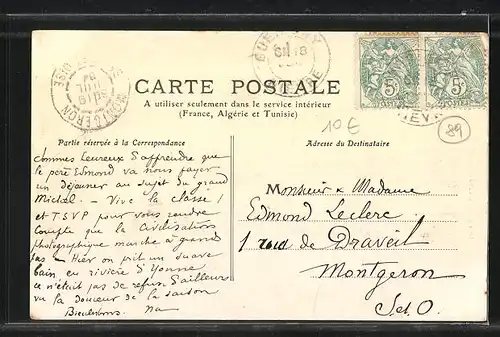 CARTE POSTALE
A utiliser seulement dans le service intérieur
(France, Algérie et Tunisie)
Partie réservée à la Correspondance
Adresse du Destinataire
10 €
89
5c
5c
MONTGERON
Sommes heureux d'apprendre que
le père Edmond va nous payer
un déjeuner au sujet du grand
Michel. - Vive la classe !
et TSVP pour vous rendre
compte que la civilisation
photographique marche à grand
pas - Hier on prit un suave
bain en rivière d'Yonne
ce n'était pas de refus d'ailleurs
vu la douceur de la saison
Monsieur & Madame
Edmond Leclerc
1 rue de Draveil
Montgeron
S et O.